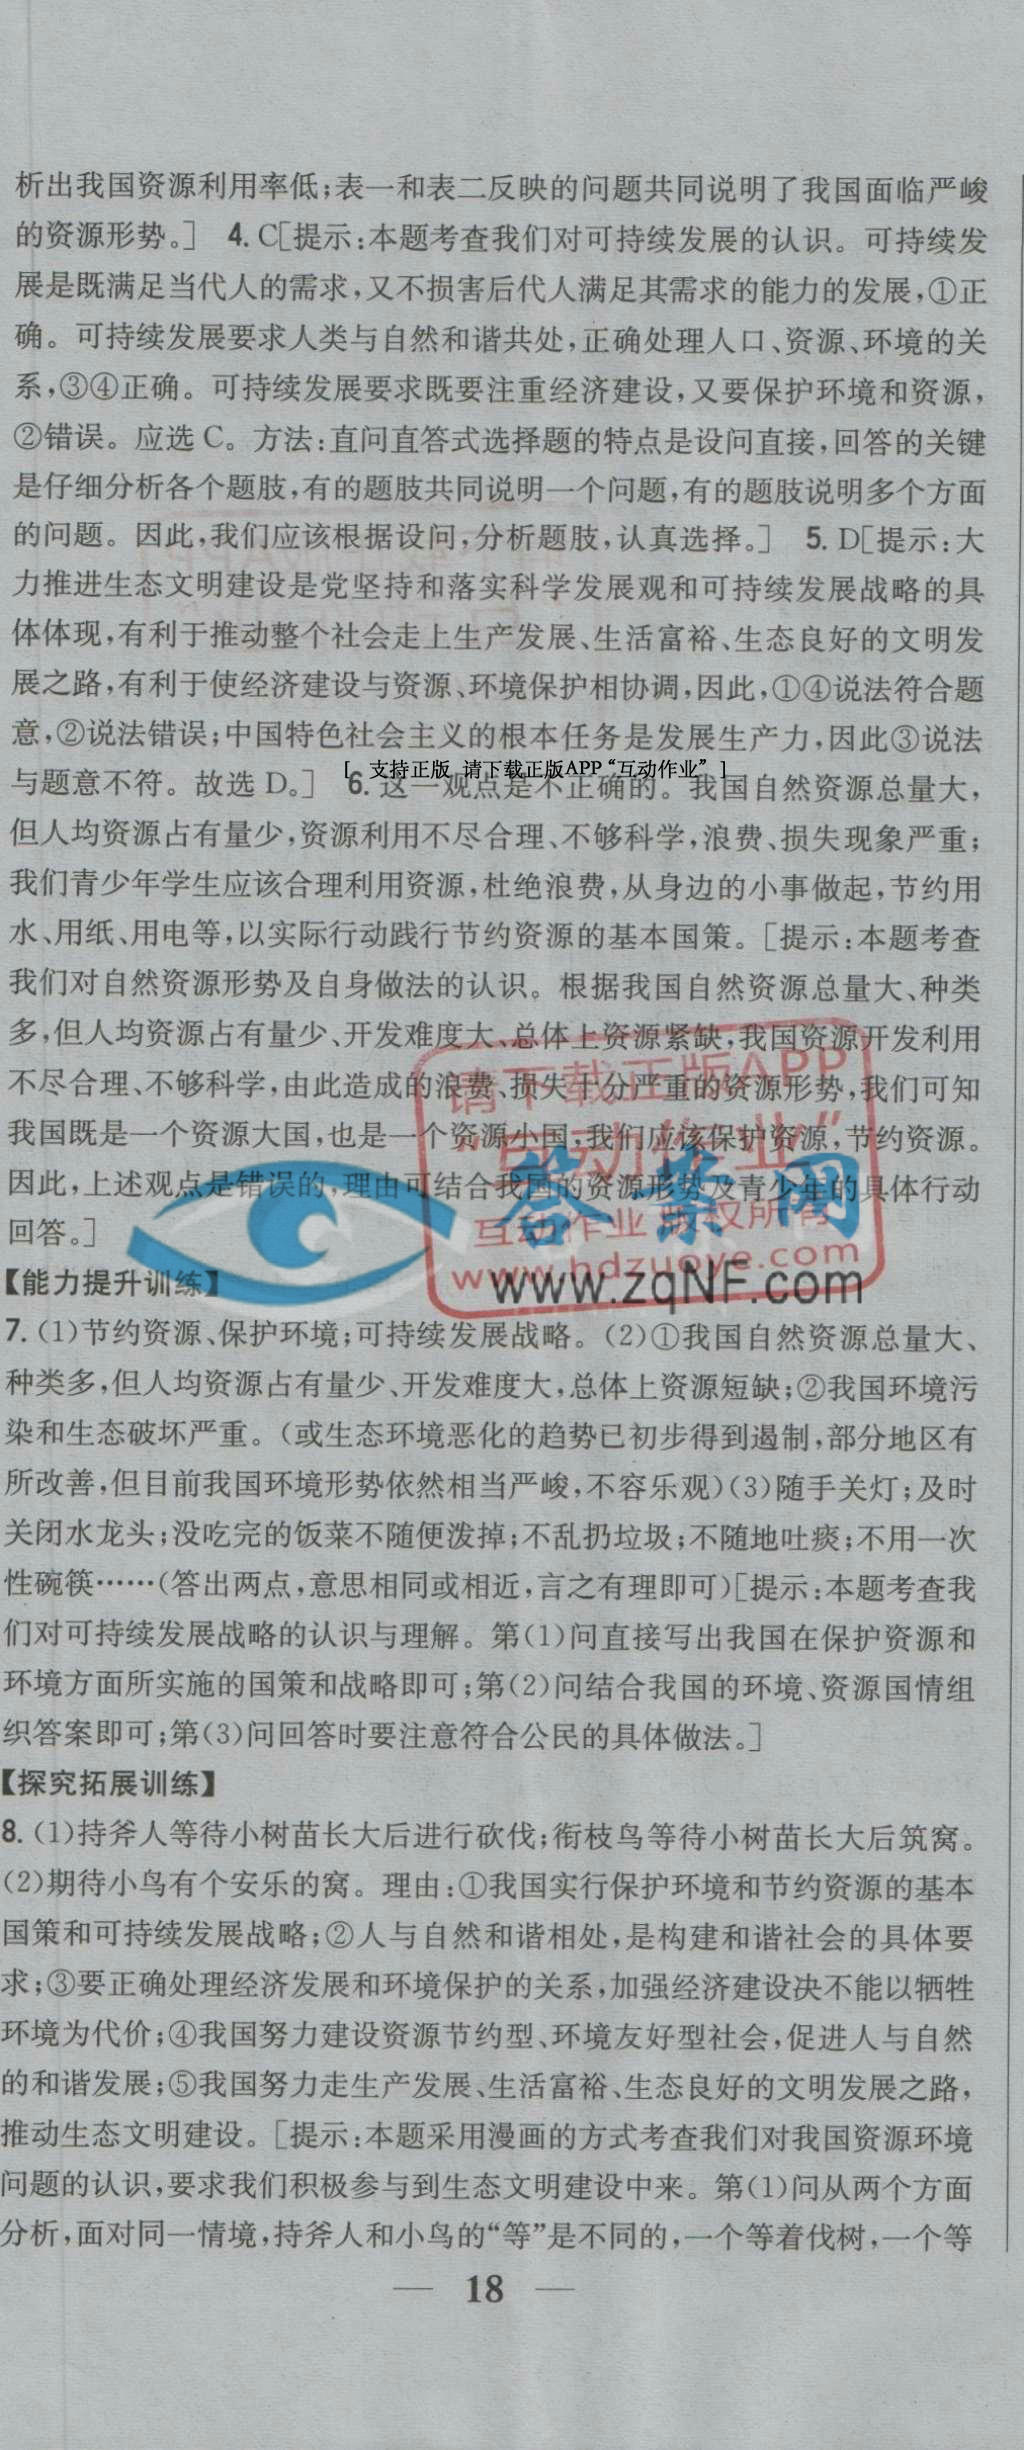 析出我国资源利用率低;表一和表二反映的问题共同说明了我国面临严峻
的资源形势。] 4. C[提示:本题考查我们对可持续发展的认识。可持续发
展是既满足当代人的需求,又不损害后代人满足其需求的能力的发展,①正
确。可持续发展要求人类与自然和谐共处,正确处理人口、资源、环境的关
系,③④正确。可持续发展要求既要注重经济建设,又要保护环境和资源,
②错误。应选 C。方法:直问直答式选择题的特点是设问直接,回答的关键
是仔细分析各个题肢,有的题肢共同说明一个问题,有的题肢说明多个方面
的问题。因此,我们应该根据设问,分析题肢,认真选择。] 5. D[提示:大
力推进生态文明建设是党坚持和落实科学发展观和可持续发展战略的具
体体现,有利于推动整个社会走上生产发展、生活富裕、生态良好的文明发
展之路,有利于使经济建设与资源、环境保护相协调,因此,①④说法符合题
意,②说法错误;中国特色社会主义的根本任务是发展生产力,因此③说法
[ 支持正版 请下载正版APP“互动作业” ]
与题意不符。故选 D。] 6. 这一观点是不正确的。我国自然资源总量大,
但人均资源占有量少,资源利用不尽合理、不够科学,浪费、损失现象严重;
我们青少年学生应该合理利用资源,杜绝浪费,从身边的小事做起,节约用
水、用纸、用电等,以实际行动践行节约资源的基本国策。[提示:本题考查
我们对自然资源形势及自身做法的认识。根据我国自然资源总量大、种类
多,但人均资源占有量少、开发难度大、总体上资源紧缺,我国资源开发利用
不尽合理、不够科学,由此造成的浪费、损失十分严重的资源形势,我们可知
我国既是一个资源大国,也是一个资源小国,我们应该保护资源,节约资源。
因此,上述观点是错误的,理由可结合我国的资源形势及青少年的具体行动
回答。]
请下载正版APP
“互动作业”
答案网
互动作业 版权所有
www.hdzuoye.com
www.zqNF.com
【能力提升训练】
7. (1)节约资源、保护环境;可持续发展战略。(2)①我国自然资源总量大、
种类多,但人均资源占有量少、开发难度大,总体上资源短缺;②我国环境污
染和生态破坏严重。(或生态环境恶化的趋势已初步得到遏制,部分地区有
所改善,但目前我国环境形势依然相当严峻,不容乐观)(3)随手关灯;及时
关闭水龙头;没吃完的饭菜不随便泼掉;不乱扔垃圾;不随地吐痰;不用一次
性碗筷……(答出两点,意思相同或相近,言之有理即可)[提示:本题考查我
们对可持续发展战略的认识与理解。第(1)问直接写出我国在保护资源和
环境方面所实施的国策和战略即可;第(2)问结合我国的环境、资源国情组
织答案即可;第(3)问回答时要注意符合公民的具体做法。]
【探究拓展训练】
8. (1)持斧人等待小树苗长大后进行砍伐;衔枝鸟等待小树苗长大后筑窝。
(2)期待小鸟有个安乐的窝。理由:①我国实行保护环境和节约资源的基本
国策和可持续发展战略;②人与自然和谐相处,是构建和谐社会的具体要
求;③要正确处理经济发展和环境保护的关系,加强经济建设决不能以牺牲
环境为代价;④我国努力建设资源节约型、环境友好型社会,促进人与自然
的和谐发展;⑤我国努力走生产发展、生活富裕、生态良好的文明发展之路,
推动生态文明建设。[提示:本题采用漫画的方式考查我们对我国资源环境
问题的认识,要求我们积极参与到生态文明建设中来。第(1)问从两个方面
分析,面对同一情境,持斧人和小鸟的“等”是不同的,一个等着伐树,一个等
— 18 —